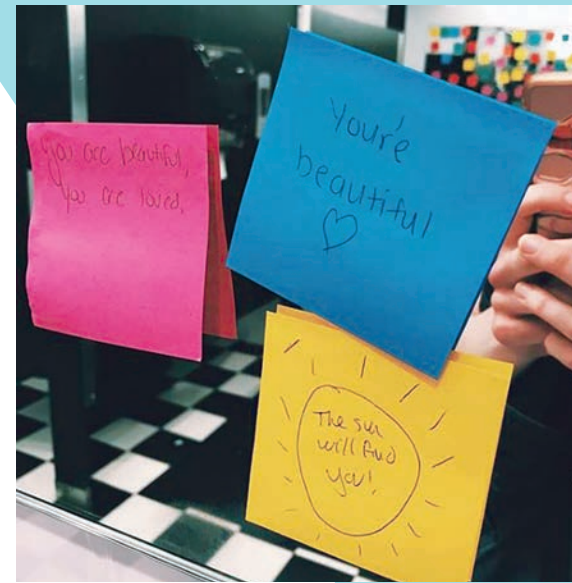 You are beautiful,
You are loved.
You're
beautiful
♡
The sun
will find
you!